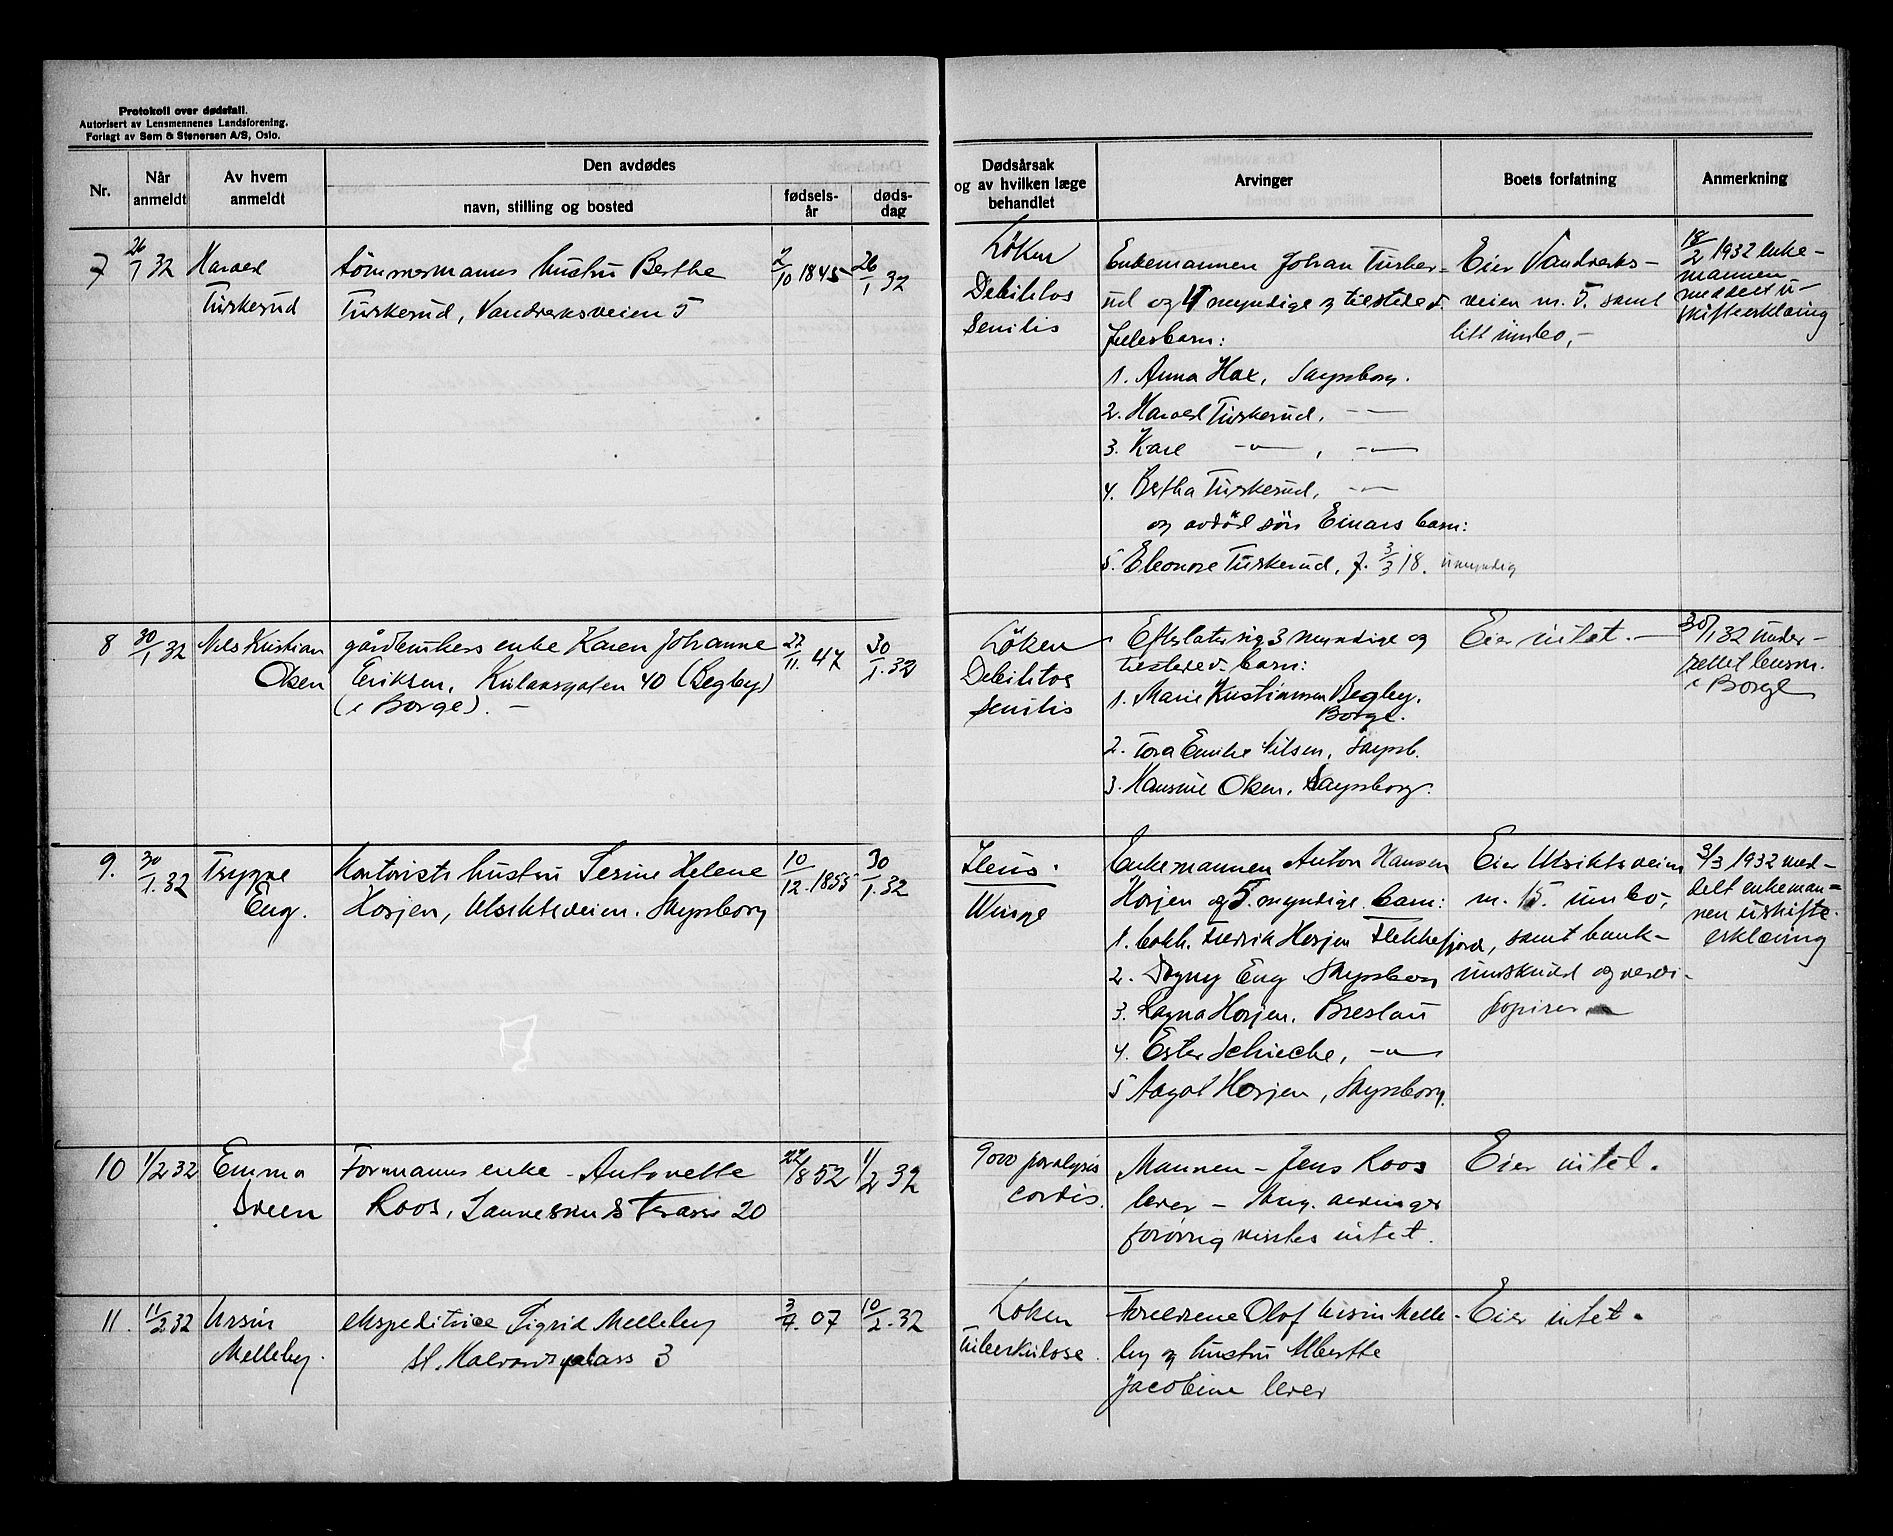 Protokoll over dødsfall.
Autorisert av Lensmennenes Landsforening.
Forlagt av Sem & Stenersen A/S, Oslo.
Nr.
Når anmeldt
Av hvem anmeldt
Den avdødes
navn, stilling og bosted
fødsels-år
døds-dag
Dødsårsak og av hvilken læge behandlet
Arvinger
Boets forfatning
Anmerkning
7
26/1 32
Harald
Turkerud
tømmermanns hustru Berthe
Turkerud, Vandverksveien 5
2/10 1845
26/1 32
Løken
Debilitos
Senilis
Enkemannen Johan Turker-
ud og 4 myndige og tilstedev.
fellesbarn:
1. Anna Hox, Sarpsborg.
2. Harald Turkerud, -"-
3. Karl -"-, -"-
4. Bertha Turkerud, -"-
og avdød søn Einars barn:
5. Eleonore Turkerud, f. 3/3 18. umyndig
Eier Vandverks-
veien nr. 5. samt
litt innbo,-
18/2 1932 enke-
mannen
meddelt u-
skifteerklæring
8
30/1 32
Nils Kristian
Olsen
gårdbrukers enke Karen Johanne
Eriksen, 40 (Begby)
(i Borge). -
27/11. 47
30/1. 32
Løken
Debilitos
senilis
Efterlater sig 3 myndige og
tilstedev. barn:
1. Marie Kristiansen Begby.
Borge.
2. Tora Nilsen, Sarpsb.
3. Hansine Olsen, Sarpsborg.
Eier intet. -
30/1 32 under-
rettet lensm.
i Borge
9.
30/1. 32
Trygve
Eng.
Kontorists hustru Serine Helene
Horjen, Ulriksveien. Sarpsborg
10/12. 1855
30/1. 32
Ileus.
Winge
Enkemannen Anton Hansen
Horjen og 5. myndige barn:
1. Fredrik Horjen Flekkefjord,
2. Dagny Eng Sarpsborg
3. Ragna Horjen. Breslau
4. Ester Schiecke, -"-
5 Horjen, Sarpsborg.
Eier Ulriksveien
nr. 15. innbo,
samt bank-
innskudd og verdi-
papirer.
3/3 1932 med-
delt enkeman-
nen uskifte-
erklæring
10
1/2 32
Emma
Sveen
Formanns enke - Antonette
Roos, Terasse 20
22/8 52
1/2 32
paralysis
cordis.
Mannen - Jens Roos
lever -
forøvrig vistes intet.
Eier intet.
11.
11/2 32
Ursin
Melleby.
ekspeditrice Sigrid Melleby
St. Halvardsplass 3
3/4. 07
10/2. 32
Løken
Tuberkulose.
Foreldrene Olof Ursin Melle-
by og hustru Albertte
Jacobine lever
Eier intet.